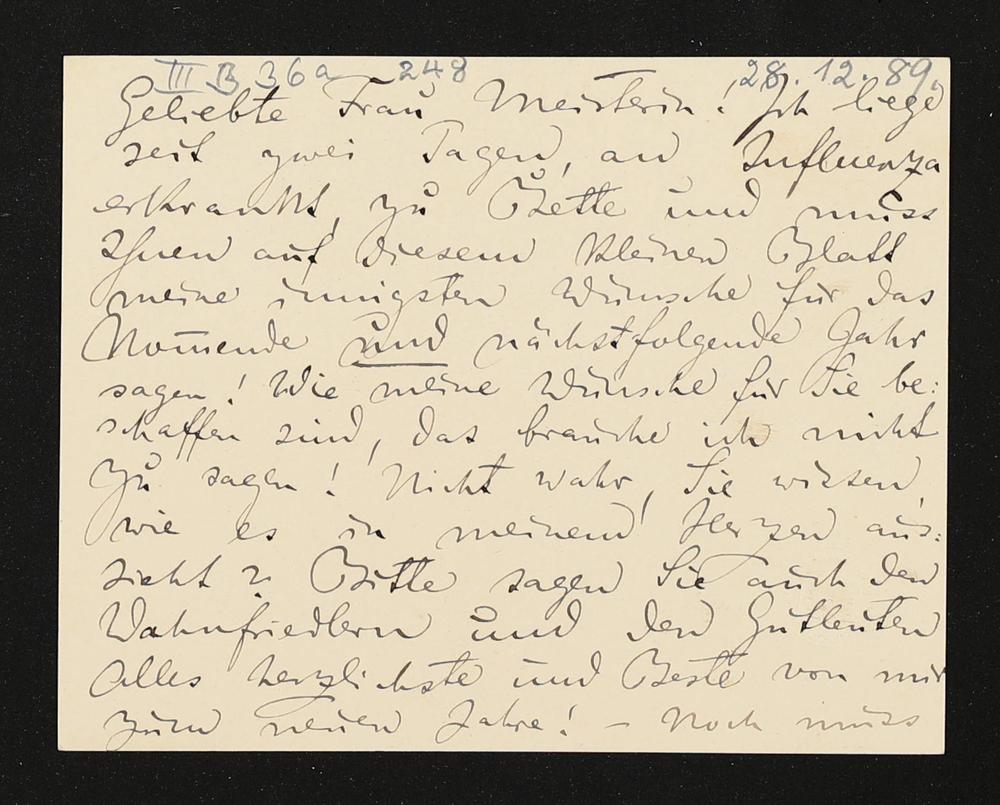 III B 36a 248 28.12.89.
Geliebte Frau Meisterin! Ich liege
seit zwei Tagen, an Influenza
erkrankt, zu Bette und muss
Ihnen auf diesem kleinen Blatt
meine innigsten Wünsche für das
Kom̄ende und nächstfolgende Jahr
sagen! Wie meine Wünsche für Sie be:
schaffen sind, das brauche ich nicht
zu sagen! Nicht wahr, Sie wissen,
wie es in meinem Herzen aus:
sieht? Bitte sagen Sie auch den
Wahnfriedlern und den Gutleuten
Alles herzlichste und Beste von mir
zum neuen Jahre! – Noch muss